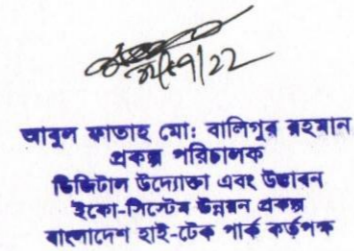 আবুল ফাতাহ মোঃ বালিগুর রহমান
প্রকল্প পরিচালক
ডিজিটাল উদ্যোক্তা এবং উদ্ভাবন
ইকো-সিস্টেম উন্নয়ন প্রকল্প
বাংলাদেশ হাই-টেক পার্ক কর্তৃপক্ষ